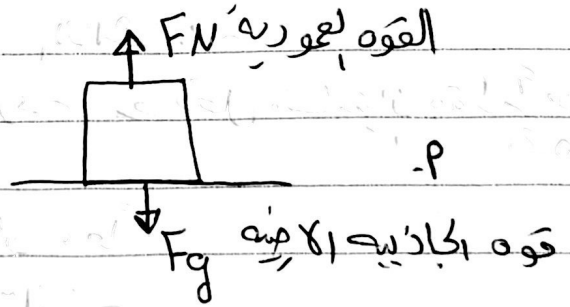 القوه العموديه FN
أ-
قوه الجاذبيه الارضيه Fg